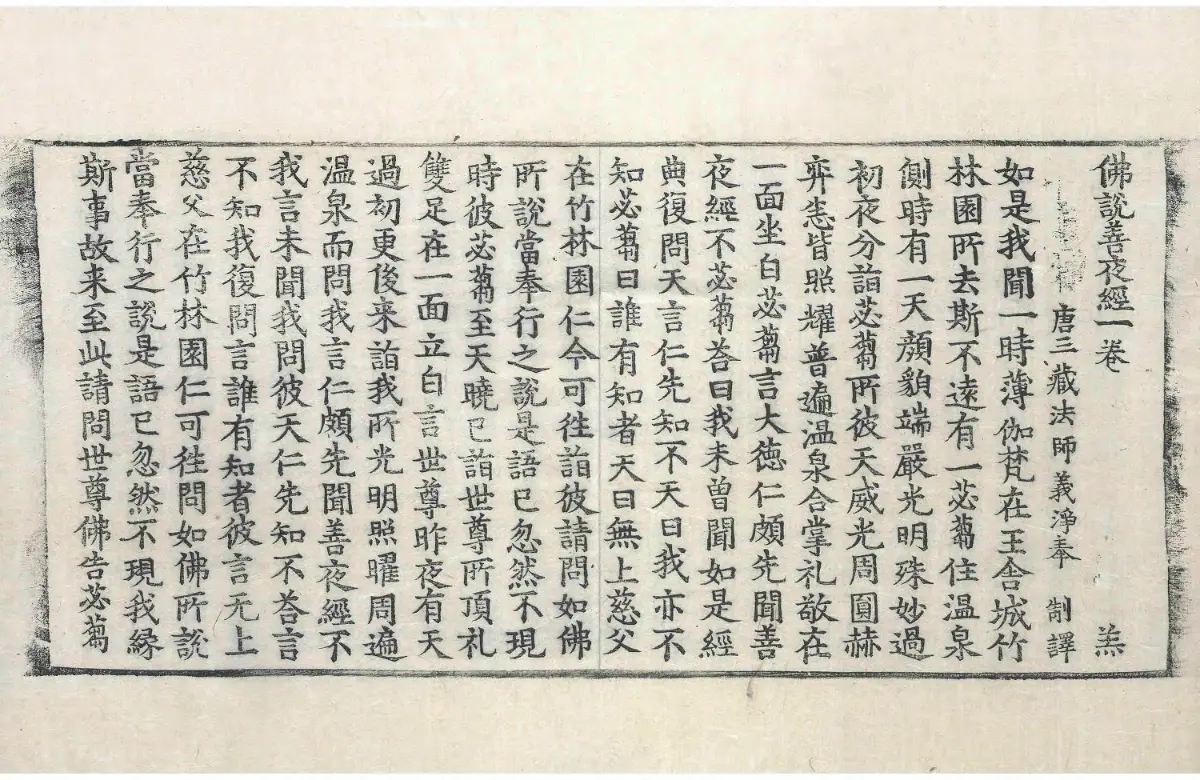 佛說善夜經一卷 羔
唐三藏法師義淨奉 制譯
如是我聞一時薄伽梵在王舍城竹
林園所去斯不遠有一苾蒭住溫泉
側時有一天顏貌端嚴光明殊妙過
初夜分詣苾蒭所彼天威光周圓赫
弈悉皆照耀普遍溫泉合掌礼敬在
一面坐白苾蒭言大德仁頗先聞善
夜經不苾蒭荅曰我未曾聞如是經
典復問天言仁先知不天曰我亦不
知苾蒭曰誰有知者天曰無上慈父
在竹林園仁今可往詣彼請問如佛
所說當奉行之說是語已忽然不現
時彼苾蒭至天曉已詣世尊所頂礼
雙足在一面立白言世尊昨夜有天
過初更後来詣我所光明照曜周遍
溫泉而問我言仁頗先聞善夜經不
我言未聞我問彼天仁先知不荅言
不知我復問言誰有知者彼言无上
慈父在竹林園仁可往問如佛所說
當奉行之說是語已忽然不現我縁
斯事故来至此請問世尊佛告苾蒭